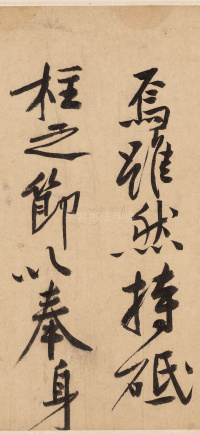 焉雖然持砥
柱之節以奉身